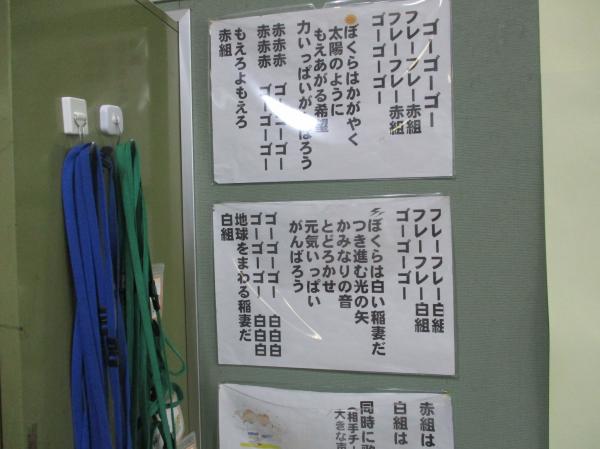 ゴーゴーゴー
フレーフレー赤組
フレーフレー赤組
ゴーゴーゴー
ぼくらはかがやく
太陽のように
もえあがる希望
力いっぱいがんばろう
赤赤赤 ゴーゴーゴー
赤赤赤 ゴーゴーゴー
もえろよもえろ
赤組
フレーフレー白組
フレーフレー白組
ゴーゴーゴー
ぼくらは白い稲妻だ
つき進む光の矢
かみなりの音
とどろかせ
元気いっぱい
がんばろう
ゴーゴーゴー 白白白
ゴーゴーゴー 白白白
地球をまわる稲妻だ
白組
赤組は
白組は
同時に歌
(相手チー
大きな声